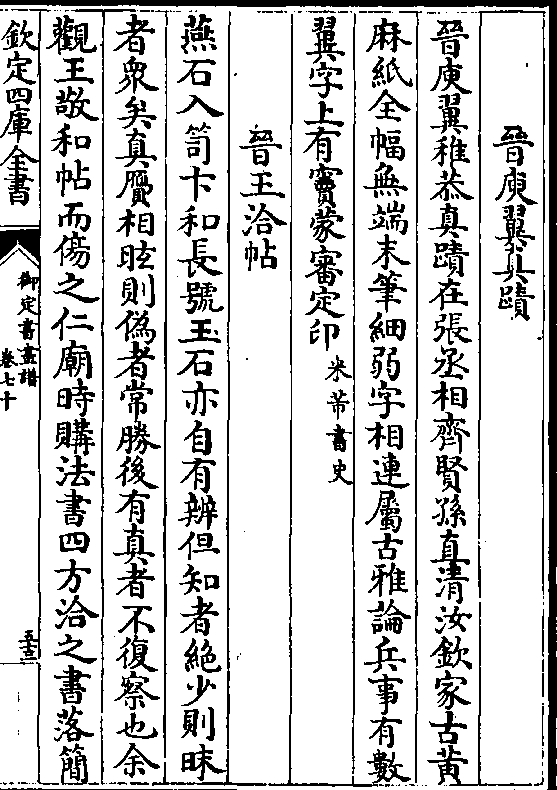 晉庾翼真蹟
晉庾翼稚恭真蹟在張丞相齊賢孫直清汝欽家古黃
麻紙全幅無端末筆細弱字相連屬古雅論兵事有數
翼字上有竇蒙審定印米芾書史
晉王洽帖
燕石入笥卞和長號玉石亦自有辨但知者絶少則昧
者衆矣真贗相眩則偽者常勝後有真者不復察也余
觀王敬和帖而傷之仁廟時購法書四方洽之書落簡
欽定四庫全書
御定書畫譜
卷七十
五十三